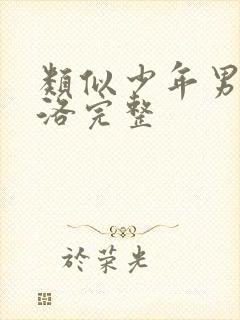 類似少年男
洛完整
於荣光